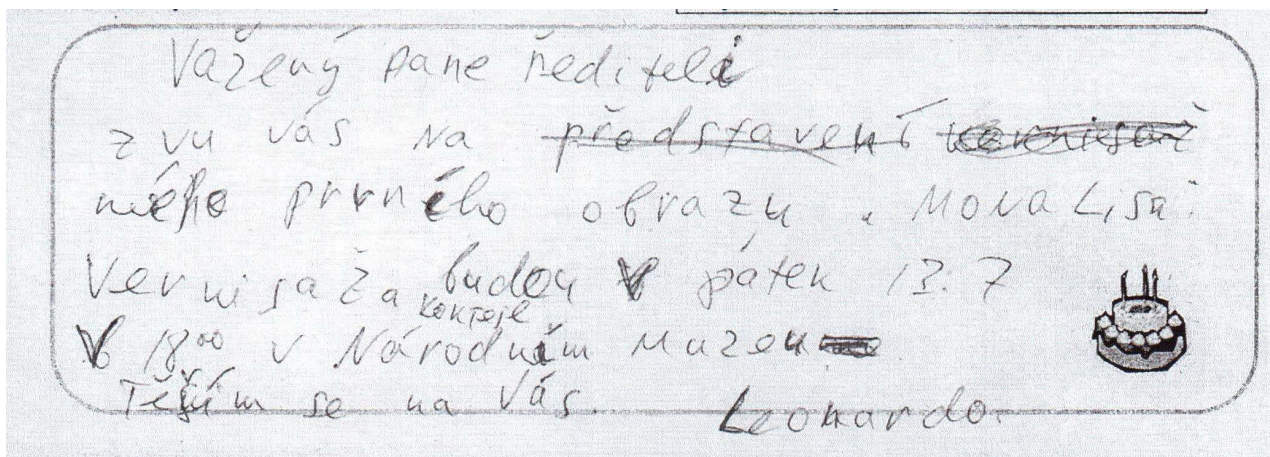 Vážený pane řediteli
zvu vás na představení vernisaž
mého prvného obrazu "Mona Lisa"
Vernisaža budou v pátek 13.7
v 18⁰⁰ v Národním Muzeu
Těším se na Vás. Leonardo.